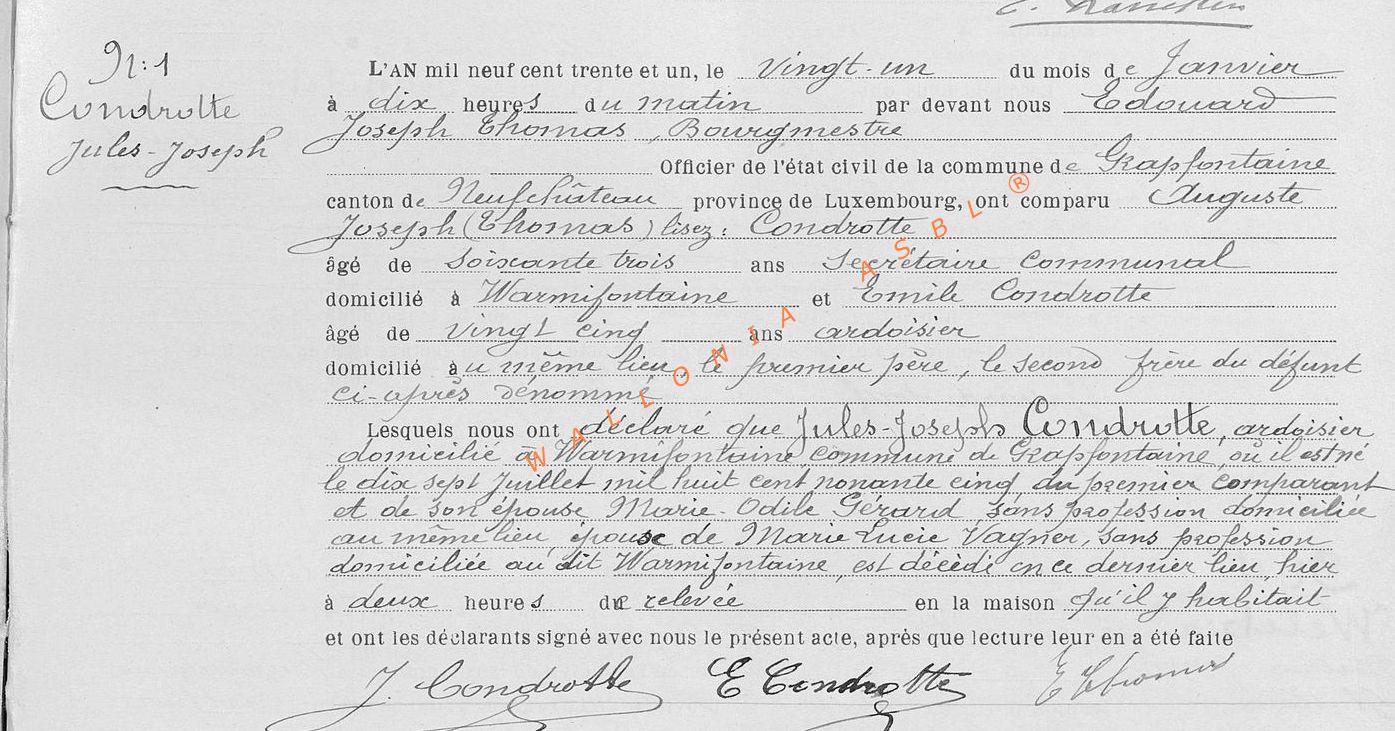 N: 1
Condrotte
Jules-Joseph
L'AN mil neuf cent trente et un, le vingt-un du mois de Janvier
à dix heures du matin par devant nous Edouard
Joseph Thomas, Bourgmestre
Officier de l'état civil de la commune de Grapfontaine
canton de Neufchâteau province de Luxembourg, ont comparu Auguste
Joseph (Thomas) lisez: Condrotte
âgé de soixante trois ans Secrétaire communal
domicilié à Warmifontaine et Emile Condrotte
âgé de vingt cinq ans ardoisier
domicilié au même lieu, le premier père, le second frère du défunt
ci-après dénommé
Lesquels nous ont déclaré que Jules-Joseph Condrotte, ardoisier
domicilié à Warmifontaine commune de Grapfontaine, où il est né
le dix sept Juillet mil huit cent nonante cinq du premier comparant
et de son épouse Marie-Odile Gérard sans profession domiciliée
au même lieu, époux de Marie Lucie Vagner, sans profession
domiciliée au dit Warmifontaine, est décédé en ce dernier lieu, hier
à deux heures de relevée en la maison qu'il y habitait
et ont les déclarants signé avec nous le présent acte, après que lecture leur en a été faite
J. Condrotte E Condrotte E Thomas
WALLONIA ASBL ®